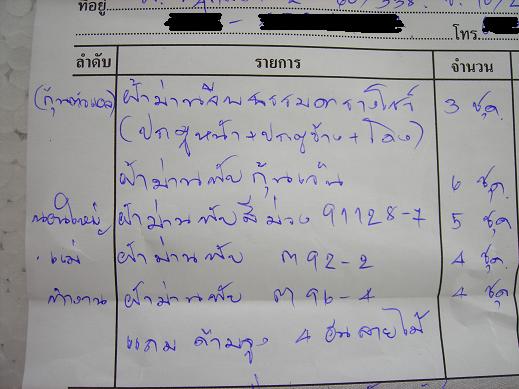 ที่อยู่
โทร.
ลำดับ รายการ จำนวน
ผ้าม่านจีบธรรมดารางโชว์ 3 ชุด
(ประตูหน้า+ประตูข้าง+โถง)
ผ้าม่านพับกุ้น 6 ชุด
นอนใหญ่ ผ้าม่านพับสีม่วง 91128-7 5 ชุด
แม่ ผ้าม่านพับ ๓92-2 4 ชุด
ทำงาน ผ้าม่านพับ ๓96-4 4 ชุด
แถม ด้ามจูง 4 อันลายไม้